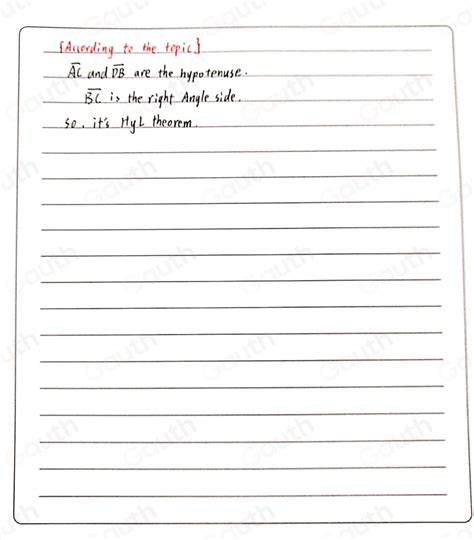 [According to the topic]
A̅C̅ and D̅B̅ are the hypotenuse.
B̅C̅ is the right Angle side.
so. it's HyL theorem.